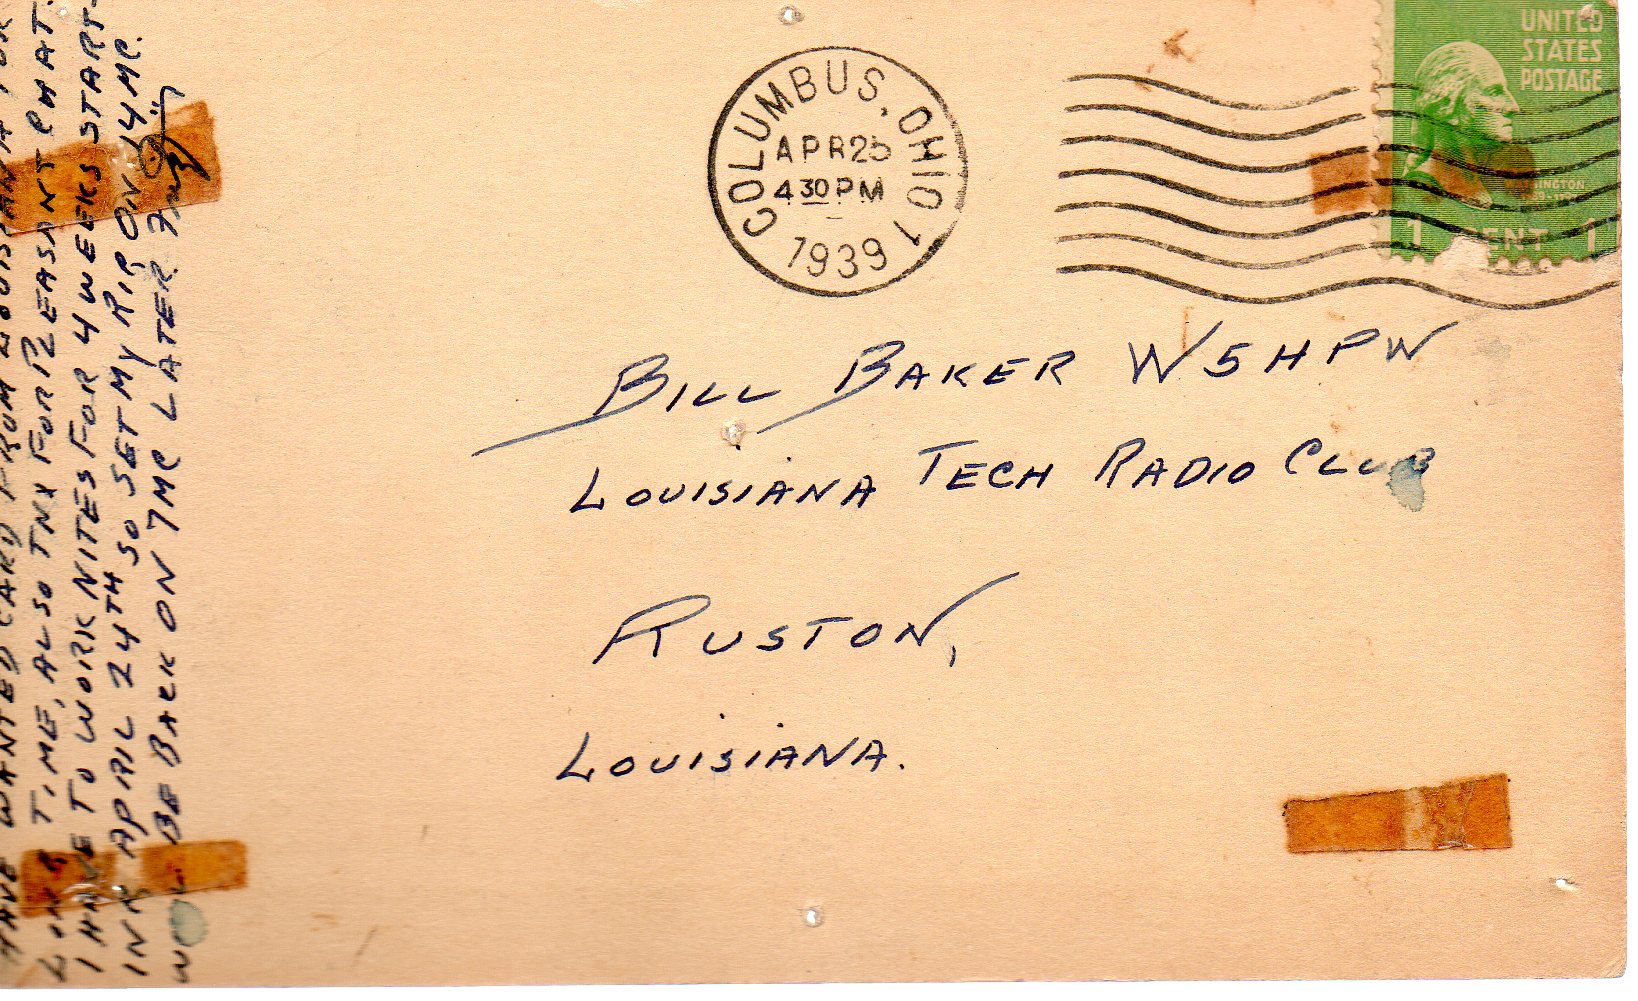 HAVE WANTED CARD FROM LOUISIANA FOR
LONG TIME, ALSO TNX FOR PLEASNT CHAT.
I HAVE TO WORK NITES FOR 4 WEEKS START-
ING APRIL 24TH SO SET MY ON 14MC.
WILL BE BACK ON 7MC LATER
COLUMBUS, OHIO 1
APR 25
4 30 PM
1939
UNITED
STATES
POSTAGE
1 CENT 1
BILL BAKER W5HPW
LOUISIANA TECH RADIO CLUB
RUSTON,
LOUISIANA.